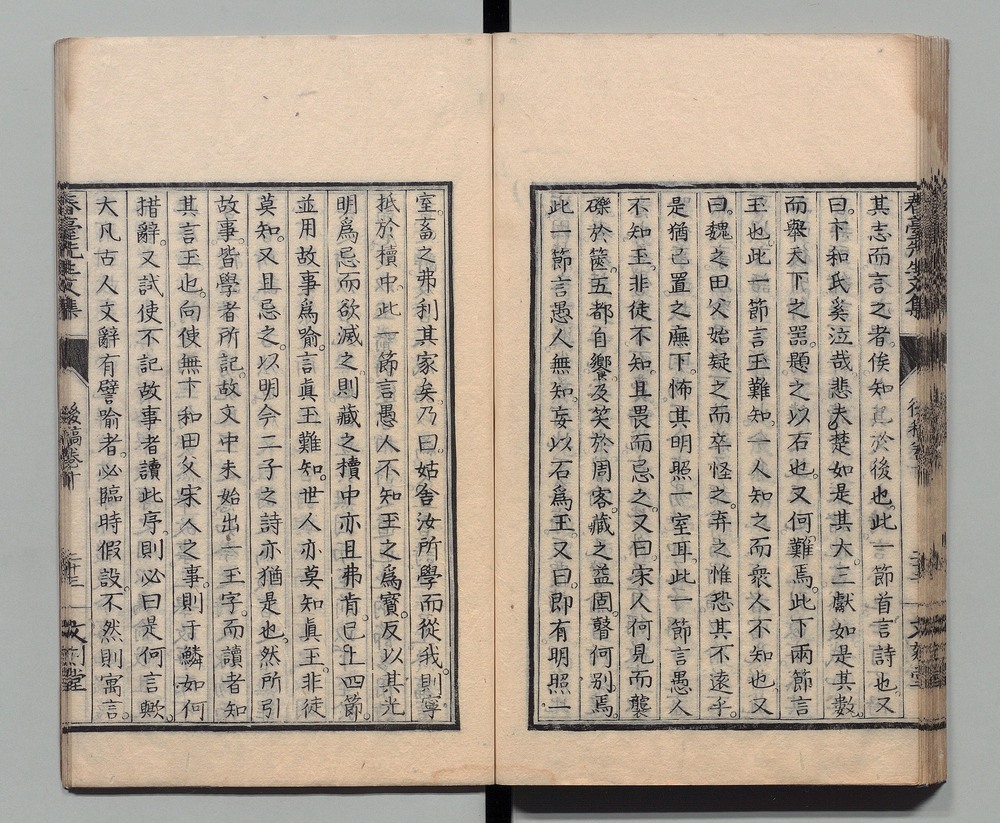 其志而言之者俟知己於後也此一節首言詩也又
曰卞和氏奚泣哉悲夫楚如是其大三獻如是其數
而擧天下之器題之以石也又何難焉此下兩節言
玉也此一節言玉難知一人知之而衆人不知也又
曰魏之田父始疑之而卒怪之弃之惟恐其不遠乎
是猶已置之廡下怖其明照一室耳此一節言愚人
不知玉非徒不知且畏而忌之又曰宋人何見而襲
礫於篋五都自饗及笑於周客藏之益固瞽何別焉
此一節言愚人無知妄以石爲玉又曰即有明照一
室畜之弗利其家矣乃曰姑舍汝所學而從我則寧
抵於櫝中此一節言愚人不知玉之爲寶反以其光
明爲忌而欲滅之則藏之櫝中亦且弗肯已上四節
並用故事爲喻言眞玉難知世人亦莫知眞玉非徒
莫知又且忌之以明今二子之詩亦猶是也然所引
故事皆學者所記故文中未始出一玉字而讀者知
其言玉也向使無卞和田父宋人之事則于鱗如何
措辭又試使不記故事者讀此序則必曰是何言歟
大凡古人文辭有譬喻者必臨時假設不然則寓言
春臺先生文集 後稿卷十 二十三